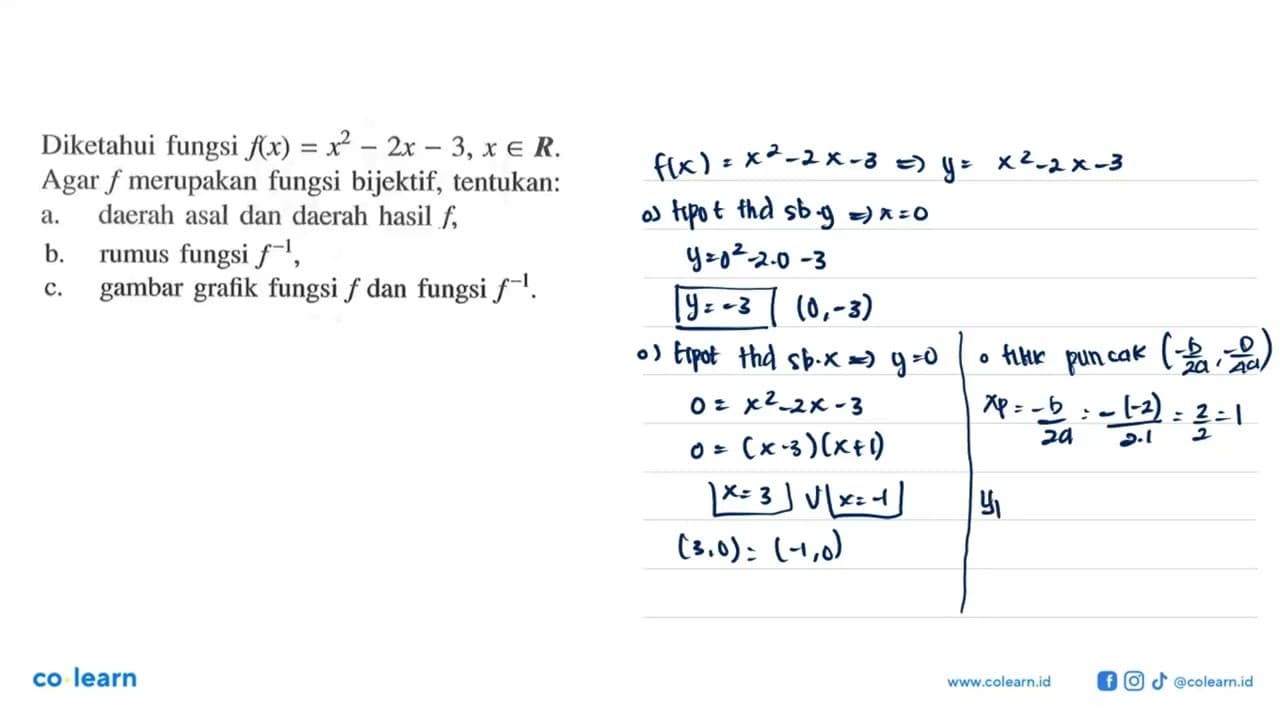 Diketahui fungsi f(x) = x² − 2x − 3, x ∈ R.
Agar f merupakan fungsi bijektif, tentukan:
a. daerah asal dan daerah hasil f,
b. rumus fungsi f⁻¹,
c. gambar grafik fungsi f dan fungsi f⁻¹.
f(x) = x²-2x-3 => y = x²-2x-3
o) tipot thd sb.y => x=0
y=0²-2.0-3
y=-3 (0,-3)
o) tipot thd sb.x => y=0
0 = x²-2x-3
0 = (x-3)(x+1)
x=3 v x=-1
(3,0) = (-1,0)
o titik puncak (-b/2a, -D/4a)
xp = -b/2a = -(-2)/2.1 = 2/2 = 1
y
co learn
www.colearn.id
@colearn.id